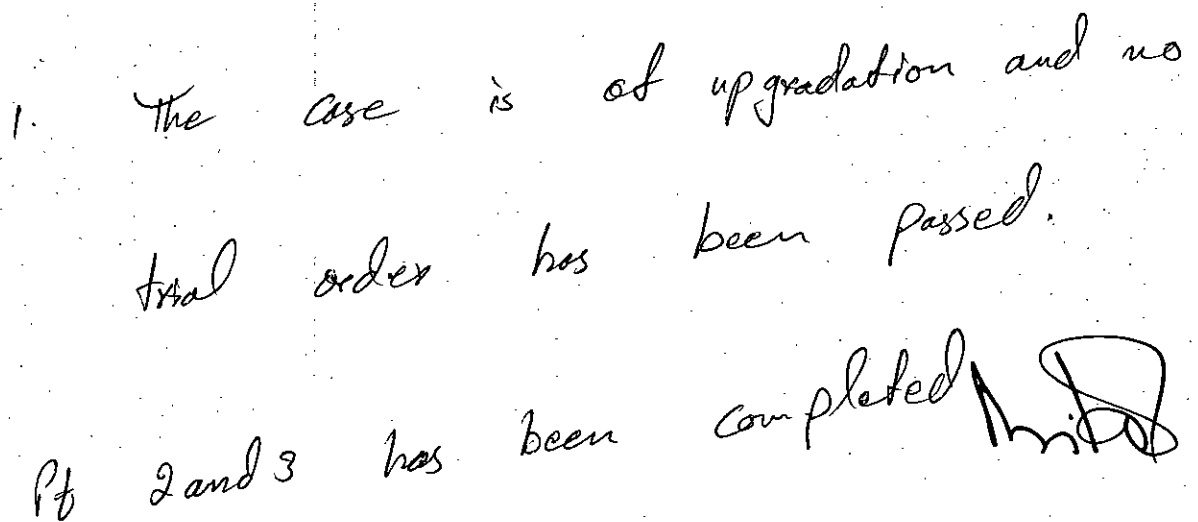 1. The case is of upgradation and no
trial order has been passed.
Pt 2 and 3 has been completed